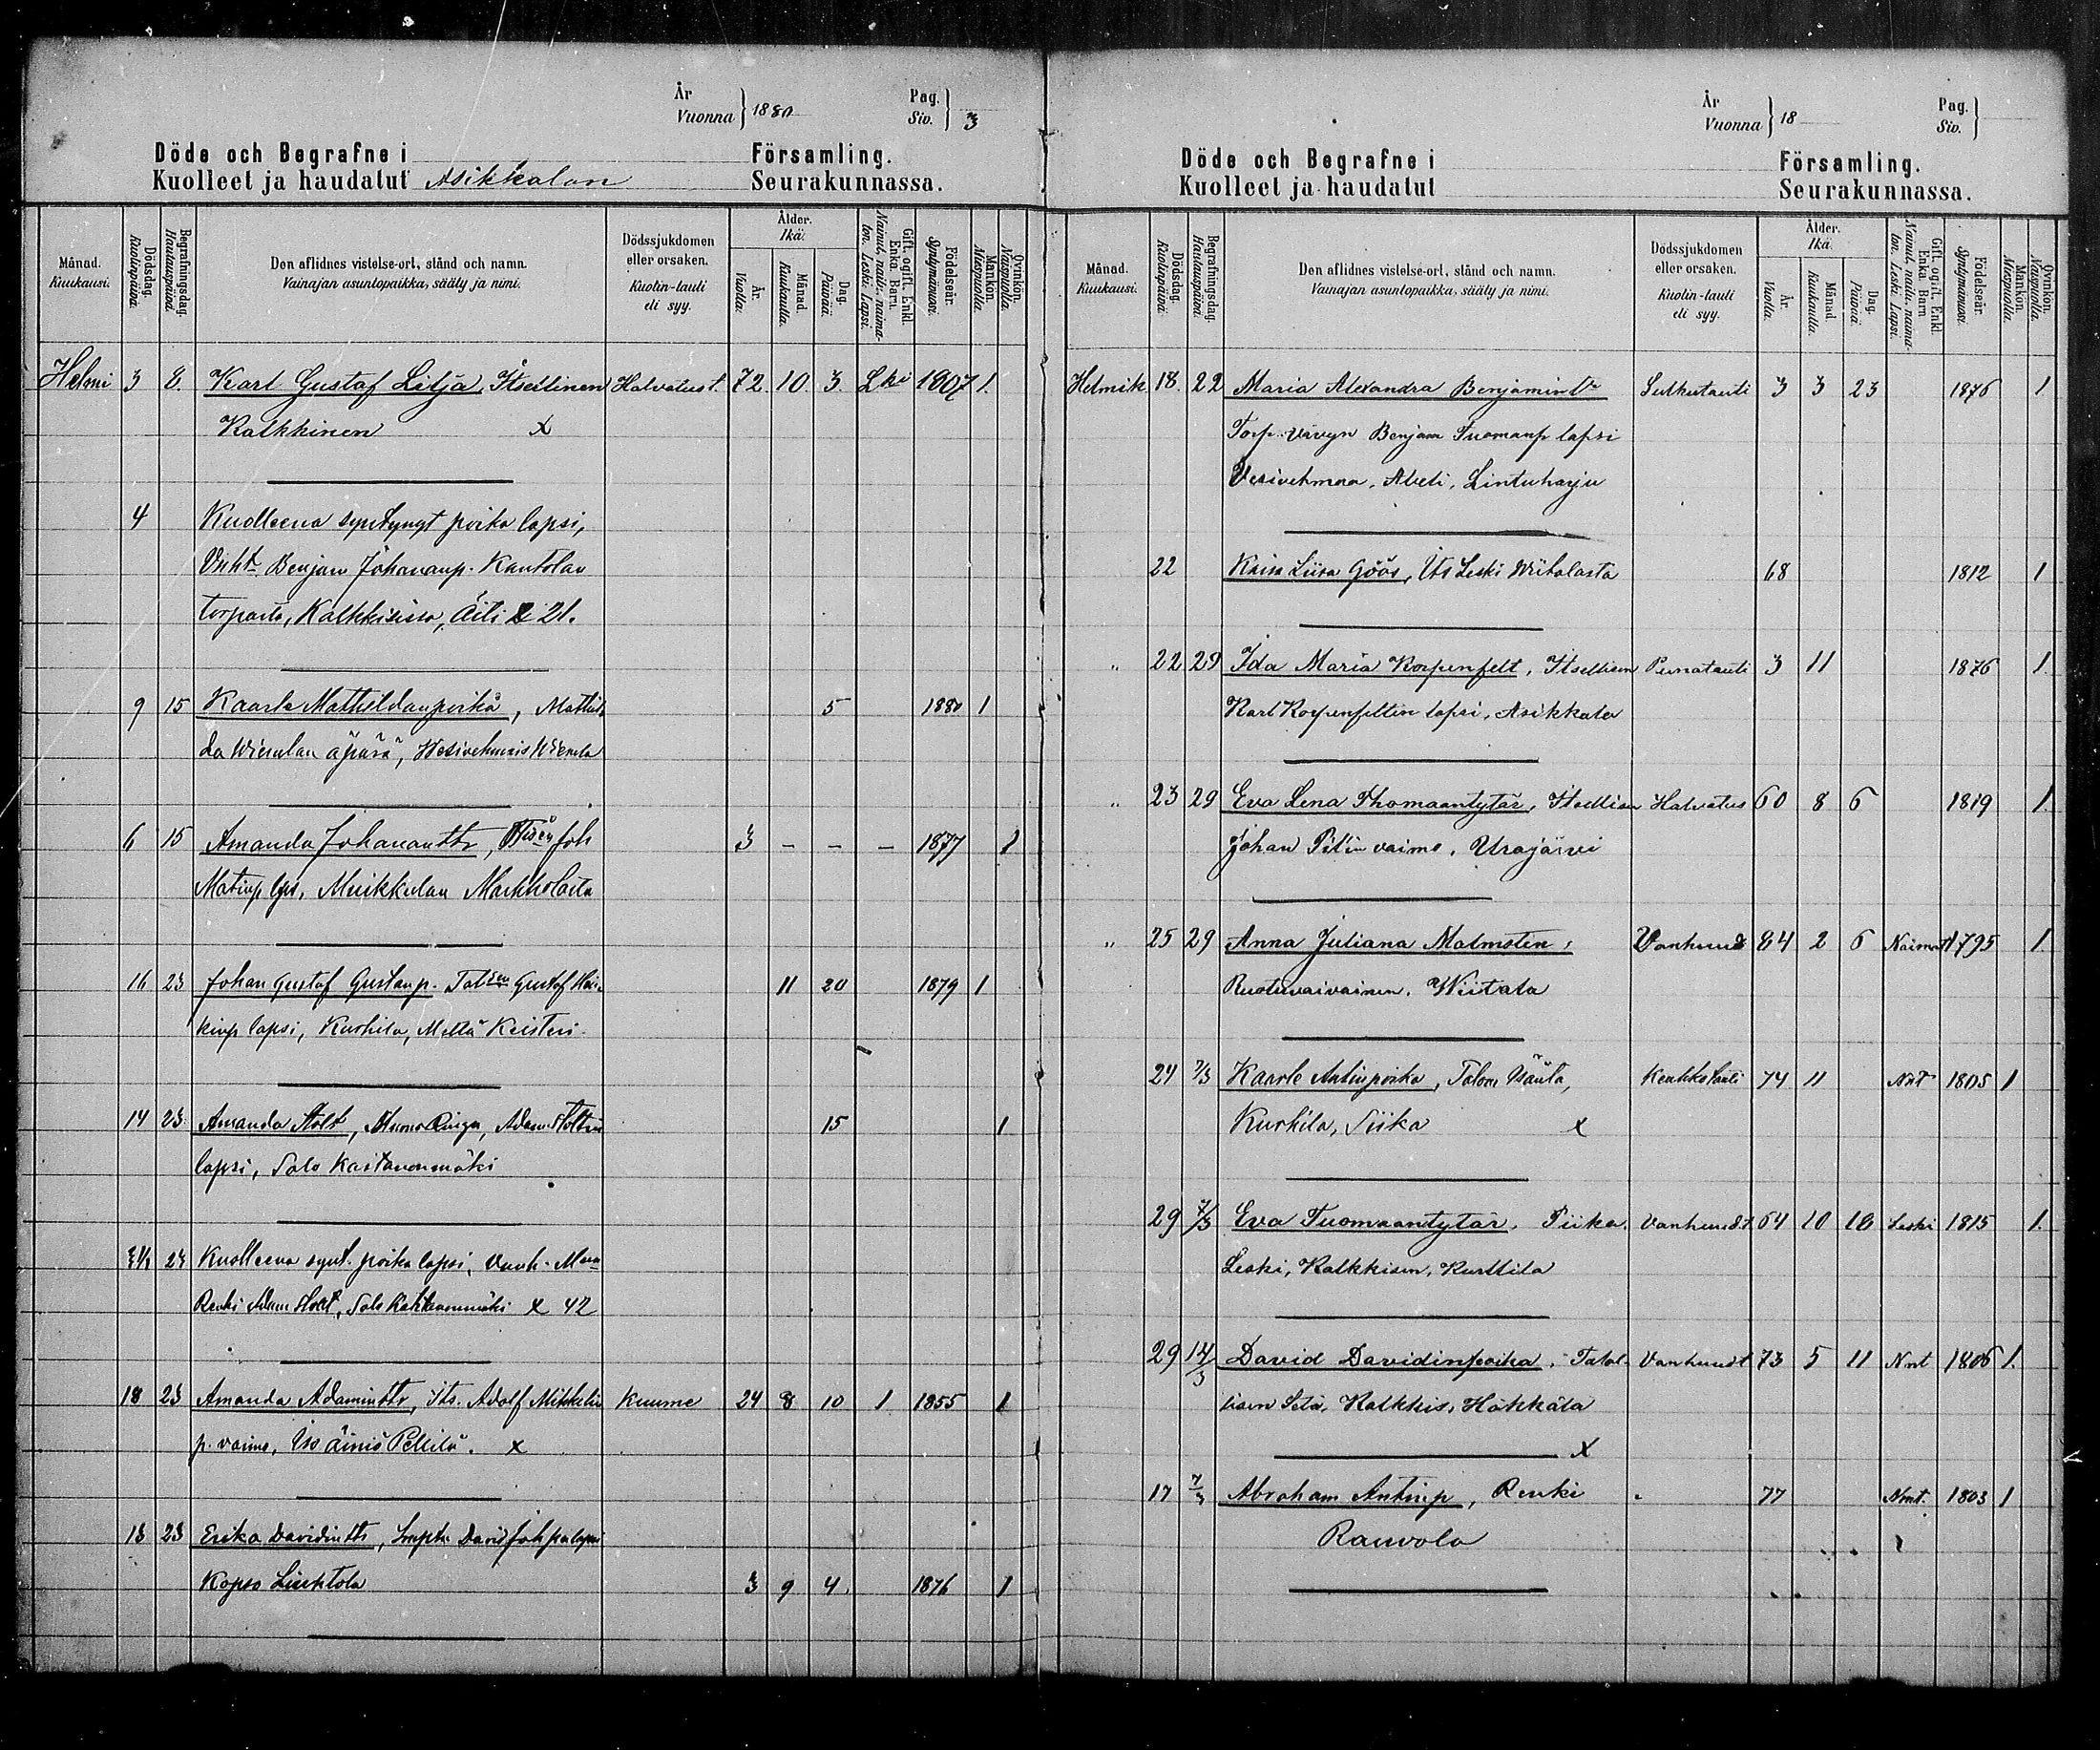 År
Vuonna } 1880
Pag.
Siv. } 3
Döde och Begrafne i Församling.
Kuolleet ja haudatut Asikkalan Seurakunnassa.
Månad. Kuukausi.
Dödsdag. Kuolinpäivä.
Begrafningsdag. Hautauspäivä.
Den aflidnes vistelse-ort, stånd och namn.
Vainajan asuntopaikka, sääty ja nimi.
Dödssjukdomen eller orsaken.
Kuolin-tauti eli syy.
Ålder. Ikä.
År. Vuotta.
Månad. Kuukautta.
Dag. Päivää.
Gift, ogift. Enkl. Enka. Barn.
Nainut, naitu, naimaton. Leski. Lapsi.
Födelseår. Syntymävuosi.
Mankön. Miespuolia.
Qvinkön. Naispuolia.
Helmi 3 8. Karl Gustaf Lilja, Itsellinen Halvatust. 72. 10. 3. Lki 1807 1.
Kalkkinen x
4 Kuolleena syntynyt poika lapsi,
Benjam Johananp. Kantolan
torpasta, Kalkkisissa, äiti 21.
9 15 Kaarle Mathildanpoika, Mathil- 5 1880 1
da Wierulan äpärä,
6 15 Amanda Johanantr, Joh 3 - - - 1877 1
Matinp lps, Muikkulan Markkolasta
16 23 Johan Gustaf Gustanp. Gustaf Hei- 11 20 1879 1
kinp lapsi, Kurhila, Mettä Keisteri
14 23 Amanda Stolt, Adam Stoltin 15 1
lapsi, Salo
23 Kuolleena synt. poika lapsi,
Renki Adam Salo x 42
18 23 Amanda Adamintr, Its. Adolf Mikkelin Kuume 24 8 10 1 1855 1
p. vaimo, Iso äiniö Pellilä. x
13 23 Erika Davidintr, David Joh
Kopso 3 9 4. 1876 1
År
Vuonna } 18
Pag.
Siv. }
Döde och Begrafne i Församling.
Kuolleet ja haudatut Seurakunnassa.
Månad. Kuukausi.
Dödsdag. Kuolinpäivä.
Begrafningsdag. Hautauspäivä.
Den aflidnes vistelse-ort, stånd och namn.
Vainajan asuntopaikka, sääty ja nimi.
Dödssjukdomen eller orsaken.
Kuolin-tauti eli syy.
Ålder. Ikä.
År. Vuotta.
Månad. Kuukautta.
Dag. Päivää.
Gift, ogift. Enkl. Enka. Barn
Nainut, naitu, naimaton. Leski. Lapsi.
Födelseår. Syntymävuosi.
Mankön. Miespuolia.
Qvinkön. Naispuolia.
Helmik. 18. 22 Maria Alexandra Benjamintr 3 3 23 1876 1
Torp. vävyn Benjam Tuomanp lapsi
Vesivehmaa, Abeli, Lintuharju
22 Kaisa Liisa Göös, Its Leski Wiitalasta 68 1812 1
" 22 29 Ida Maria Korpenfelt, Itsellisen Punatauti 3 11 1876 1.
Karl Korpenfeltin lapsi, Asikkala
" 23 29 Eva Lena Thomaantytär, Itsellisen Halvatus 60 8 6 1819 1.
Johan vaimo, Urajärvi
" 25 29 Anna Juliana Malmsten, Vanhuus 84 2 6 Naimat 1795 1.
Ruotuvaivainen. Wiitala
24 7/3 Kaarle Antinpoika, Talon Isäntä, Keuhkotauti 74 11 Nnt 1805 1
Kurhila, Siika x
29 7/3 Eva Tuomaantytär, Piika. Vanhuud.t 64 10 16 Leski 1815 1.
Leski, Kalkkisen, Kurttila
29 14/3 David Davidinpoika, Talol- Vanhuud.t 73 5 11 Nnt 1806 1.
lisen Setä, Kalkkis, Hökkälä
x
17 7/3 Abraham Antinp, Renki 77 Nnt. 1803 1
Rauvola